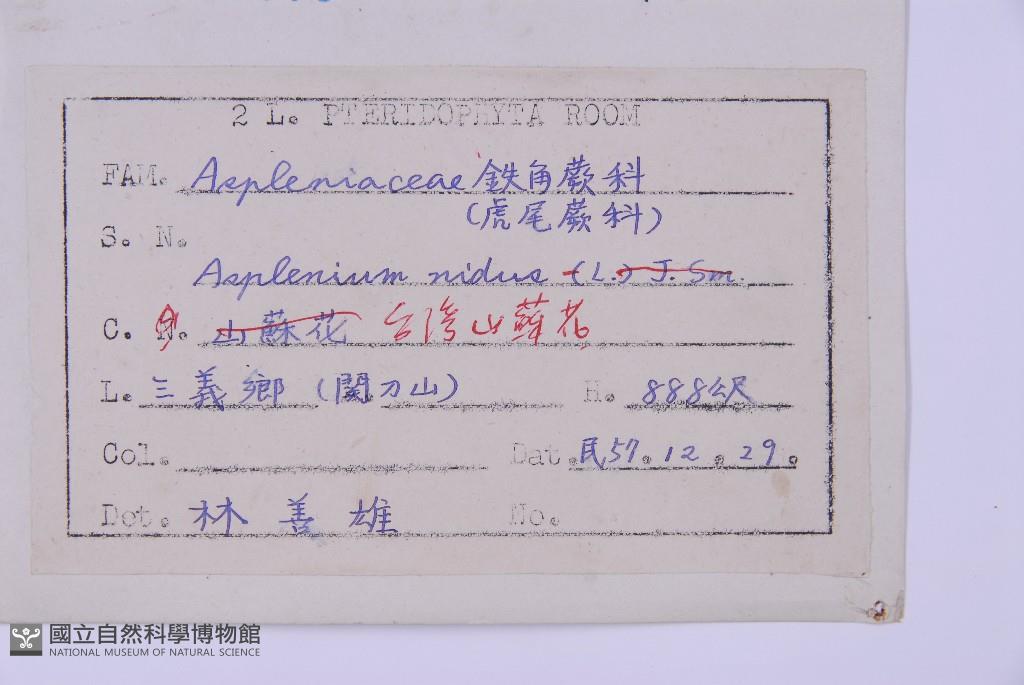 2 L. PTERIDOPHYTA ROOM
FAM. Aspleniaceae 鉄角蕨科
(虎尾蕨科)
S. N.
Asplenium nidus (L.) J. Sm.
C. N. 山蘇花 台湾山蘇花
L. 三義鄉 (関刀山) H. 888公尺
Col. Dat. 民57.12.29.
Det. 林善雄 No.
國立自然科學博物館
NATIONAL MUSEUM OF NATURAL SCIENCE